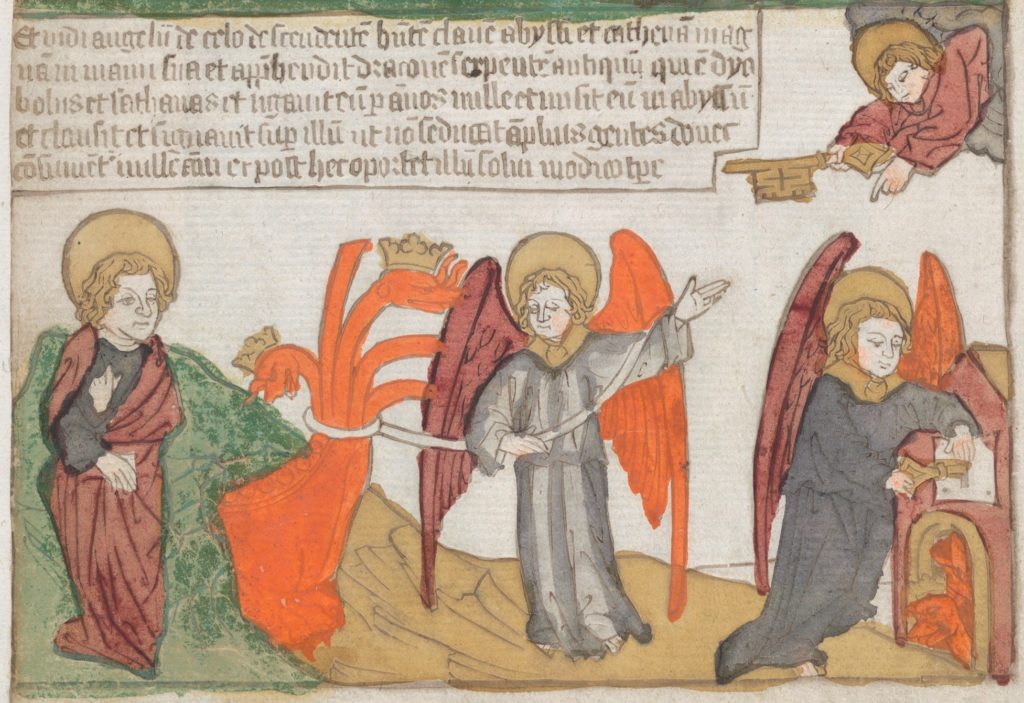 Et vidi angelū de celo descendentē hñtē clauē abyssi et cathenā mag
nā in manu sua et apphendit draconē serpentē antiquū qui ē dya
bolus et sathanas et ligauit eū p annos mille et misit eū in abyssū
et clausit et signauit sup illū ut nō seducat āplius gentes donec
cōsumēt' mille anni et post hec oportet illū solui modico tpe